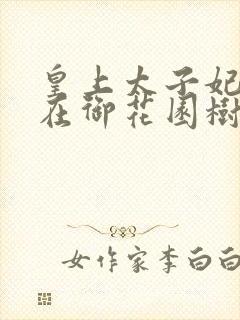 皇上太子妃
在御花园樹
女作家李白白